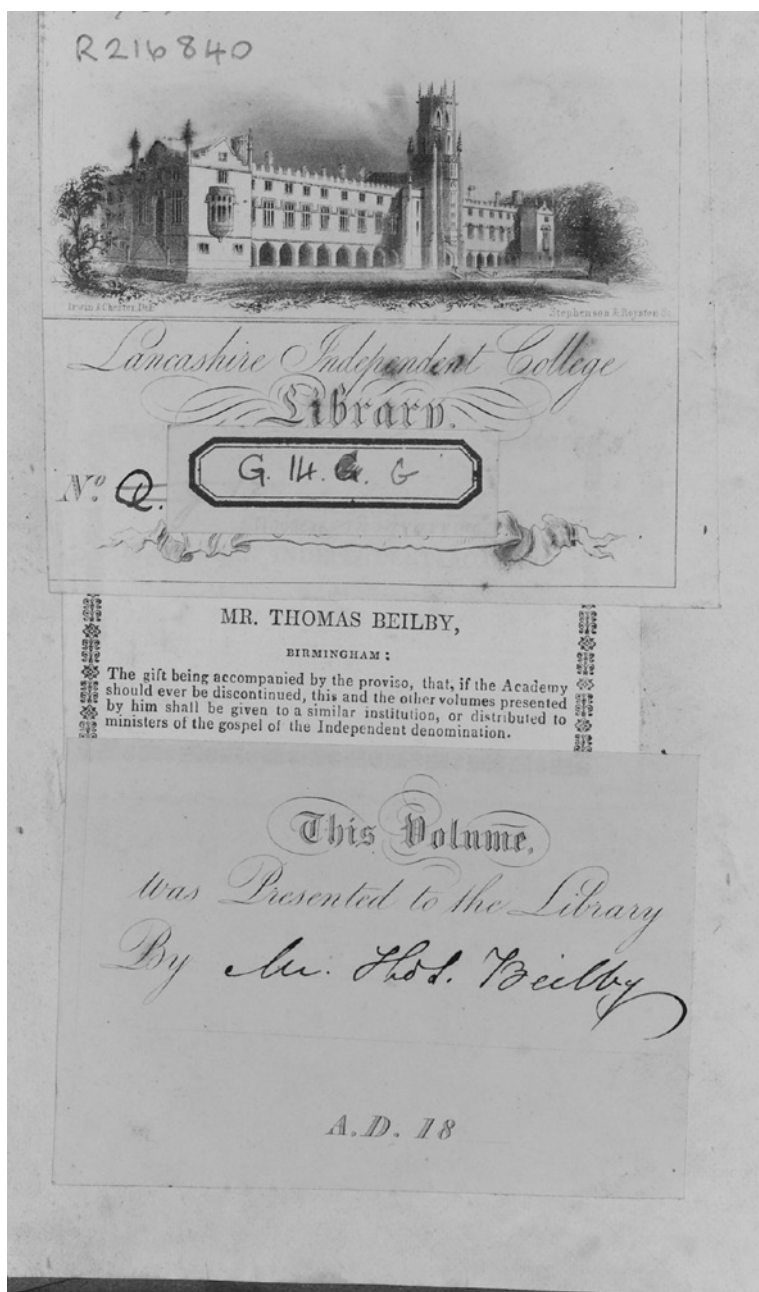 R216840
Irwin & Chester, Del.
Stephenson & Royston Sc.
Lancashire Independent College
Library.
No. Q.
G. 14. G. G
MR. THOMAS BEILBY,
BIRMINGHAM:
The gift being accompanied by the proviso, that, if the Academy
should ever be discontinued, this and the other volumes presented
by him shall be given to a similar institution, or distributed to
ministers of the gospel of the Independent denomination.
This Volume,
was Presented to the Library
By Mr. Thos. Beilby
A.D. 18